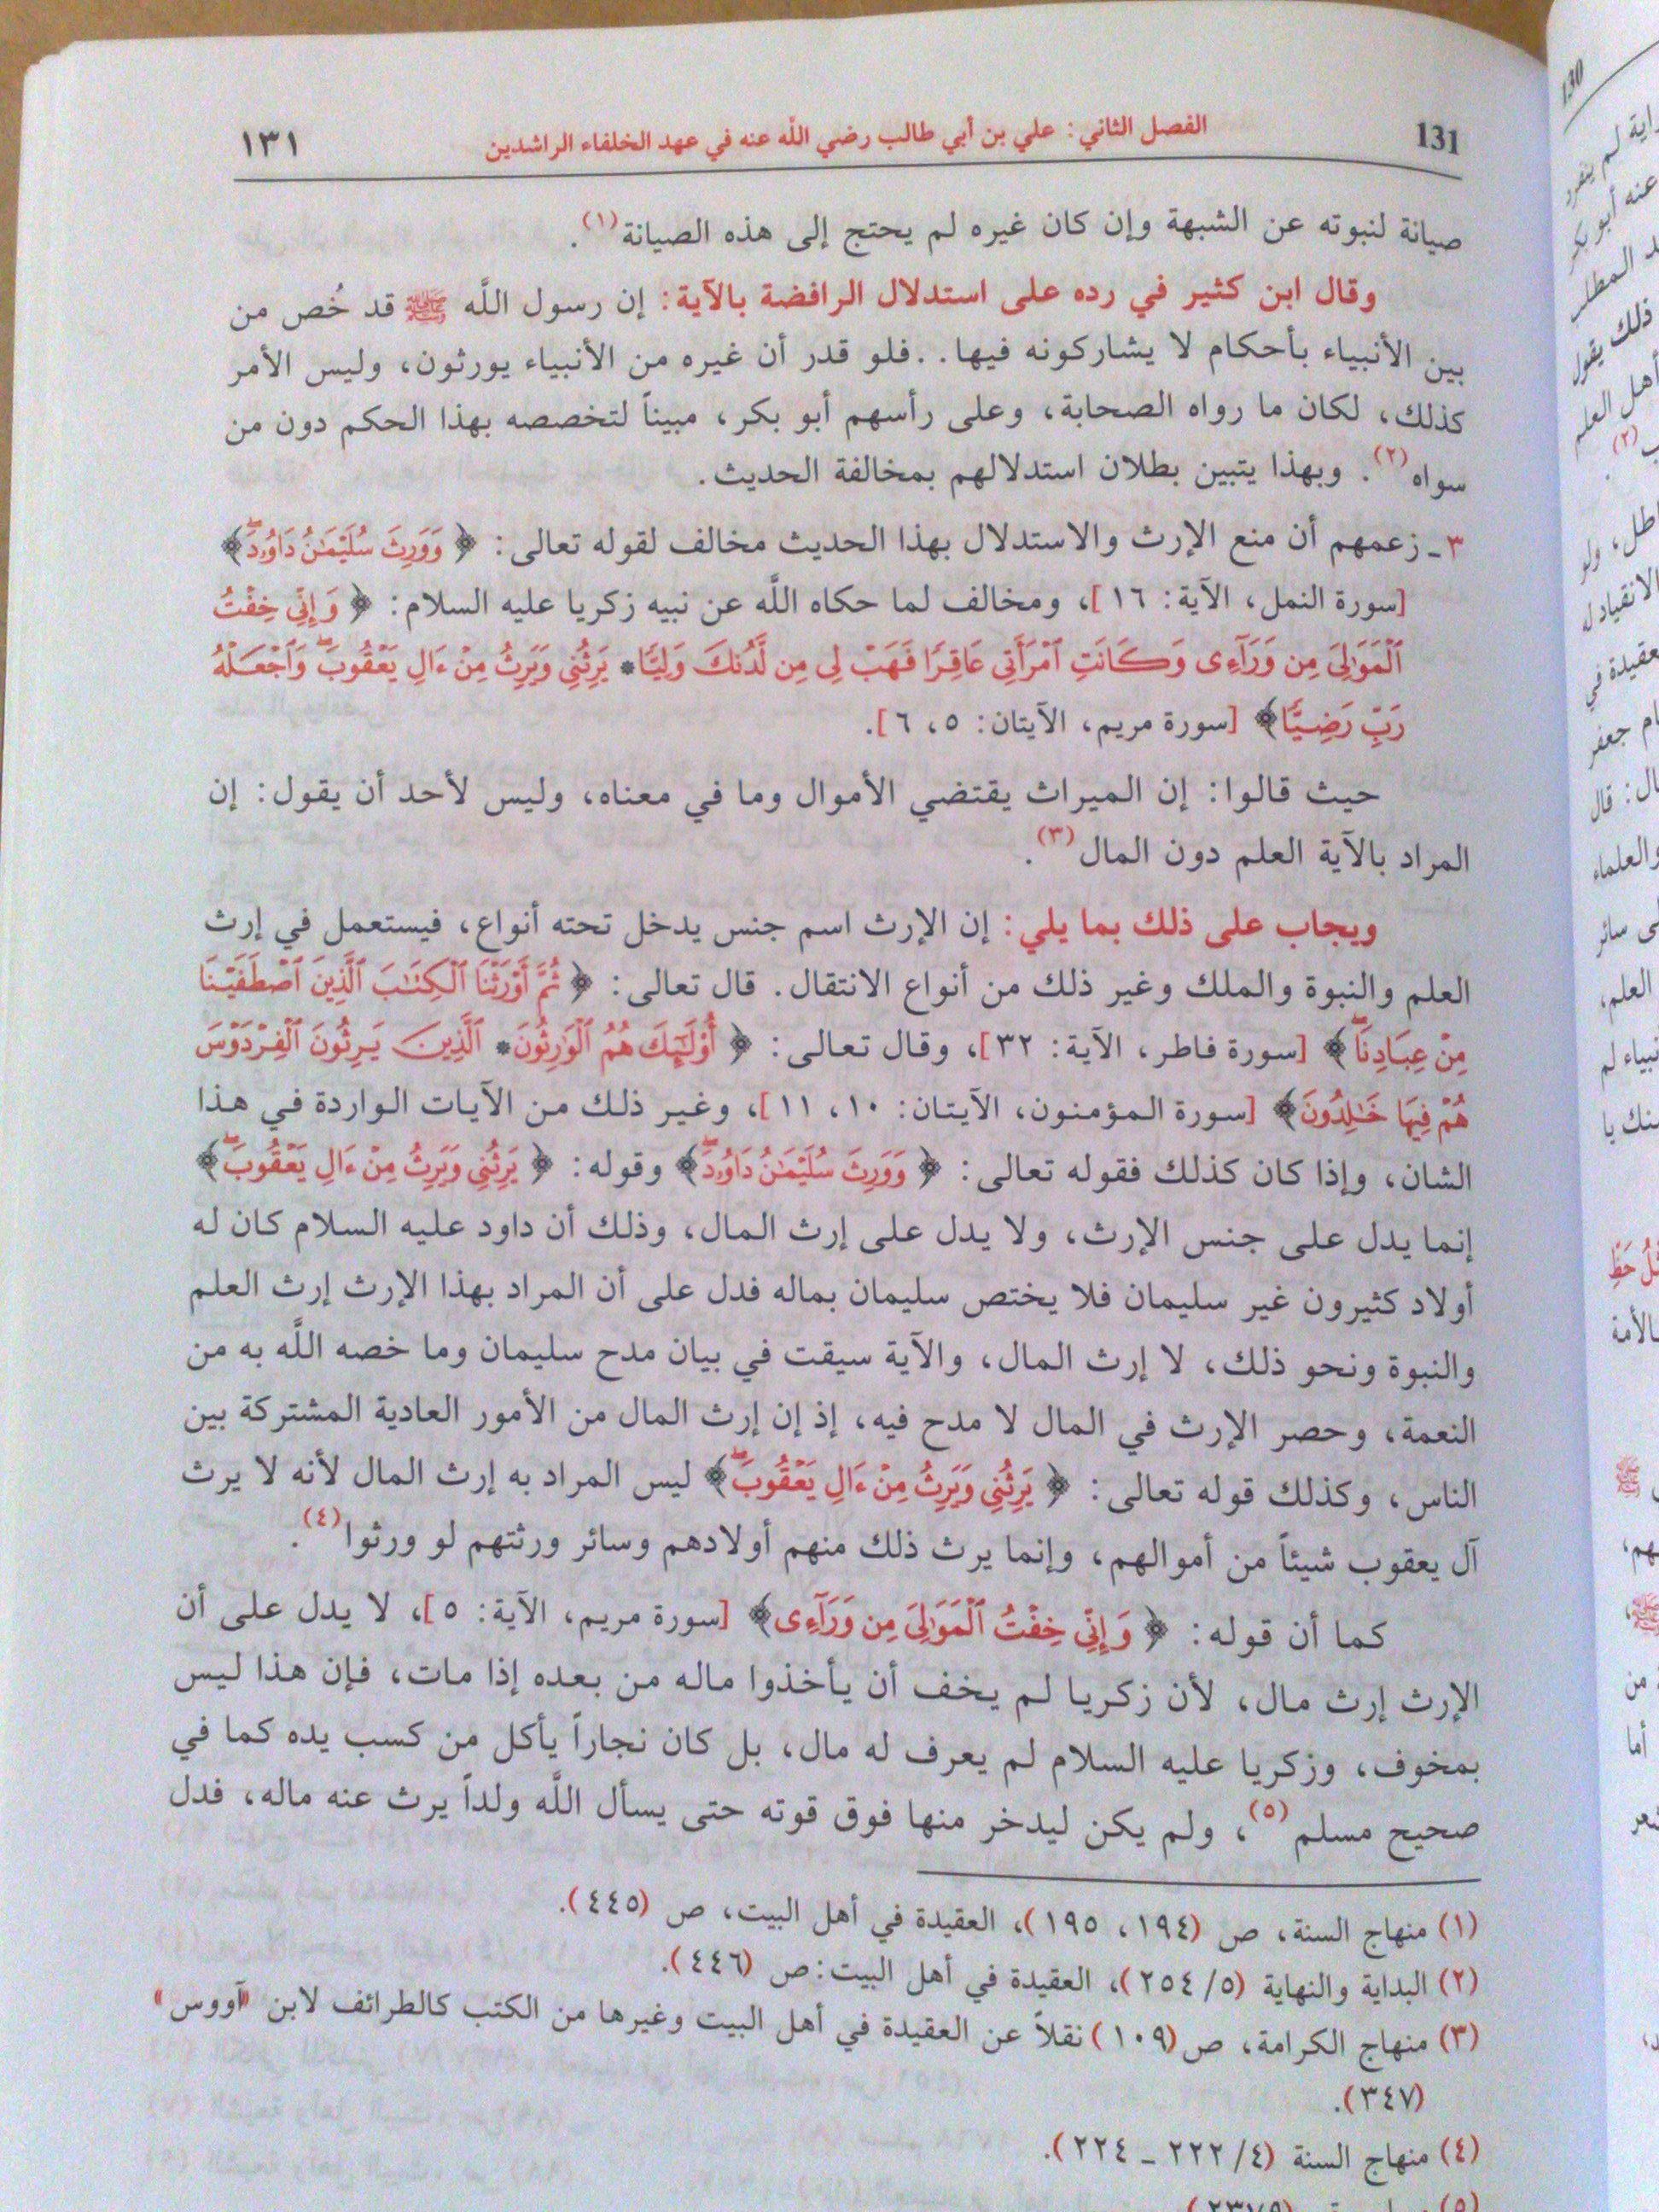 131 الفصل الثاني: علي بن أبي طالب رضي اللَّه عنه في عهد الخلفاء الراشدين ١٣١
صيانة لنبوته عن الشبهة وإن كان غيره لم يحتج إلى هذه الصيانة(١).
وقال ابن كثير في رده على استدلال الرافضة بالآية: إن رسول اللَّه ﷺ قد خُص من
بين الأنبياء بأحكام لا يشاركونه فيها. .فلو قدر أن غيره من الأنبياء يورثون، وليس الأمر
كذلك، لكان ما رواه الصحابة، وعلى رأسهم أبو بكر، مبيناً لتخصصه بهذا الحكم دون من
سواه(٢). وبهذا يتبين بطلان استدلالهم بمخالفة الحديث.
٣ـ زعمهم أن منع الإرث والاستدلال بهذا الحديث مخالف لقوله تعالى: ﴿ وَوَرِثَ سُلَيْمَٰنُ دَاوُۥدَۖ﴾
[سورة النمل، الآية: ١٦]، ومخالف لما حكاه اللَّه عن نبيه زكريا عليه السلام: ﴿ وَإِنِّى خِفْتُ
ٱلْمَوَٰلِىَ مِن وَرَآءِى وَكَانَتِ ٱمْرَأَتِى عَاقِرًا فَهَبْ لِى مِن لَّدُنكَ وَلِيًّا* يَرِثُنِى وَيَرِثُ مِنْ ءَالِ يَعْقُوبَۖ وَٱجْعَلْهُ
رَبِّ رَضِيًّا﴾ [سورة مريم، الآيتان: ٥، ٦].
حيث قالوا: إن الميراث يقتضي الأموال وما في معناه، وليس لأحد أن يقول: إن
المراد بالآية العلم دون المال(٣).
ويجاب على ذلك بما يلي: إن الإرث اسم جنس يدخل تحته أنواع، فيستعمل في إرث
العلم والنبوة والملك وغير ذلك من أنواع الانتقال. قال تعالى: ﴿ ثُمَّ أَوْرَثْنَا ٱلْكِتَٰبَ ٱلَّذِينَ ٱصْطَفَيْنَا
مِنْ عِبَادِنَاۖ ﴾ [سورة فاطر، الآية: ٣٢]، وقال تعالى: ﴿ أُوْلَٰٓئِكَ هُمُ ٱلْوَٰرِثُونَ* ٱلَّذِينَ يَرِثُونَ ٱلْفِرْدَوْسَ
هُمْ فِيهَا خَٰلِدُونَ﴾ [سورة المؤمنون، الآيتان: ١٠، ١١]، وغير ذلك من الآيات الواردة في هذا
الشان، وإذا كان كذلك فقوله تعالى: ﴿ وَوَرِثَ سُلَيْمَٰنُ دَاوُۥدَۖ﴾ وقوله: ﴿ يَرِثُنِى وَيَرِثُ مِنْ ءَالِ يَعْقُوبَۖ﴾
إنما يدل على جنس الإرث، ولا يدل على إرث المال، وذلك أن داود عليه السلام كان له
أولاد كثيرون غير سليمان فلا يختص سليمان بماله فدل على أن المراد بهذا الإرث إرث العلم
والنبوة ونحو ذلك، لا إرث المال، والآية سيقت في بيان مدح سليمان وما خصه اللَّه به من
النعمة، وحصر الإرث في المال لا مدح فيه، إذ إن إرث المال من الأمور العادية المشتركة بين
الناس، وكذلك قوله تعالى: ﴿ يَرِثُنِى وَيَرِثُ مِنْ ءَالِ يَعْقُوبَۖ﴾ ليس المراد به إرث المال لأنه لا يرث
آل يعقوب شيئاً من أموالهم، وإنما يرث ذلك منهم أولادهم وسائر ورثتهم لو ورثوا(٤).
كما أن قوله: ﴿ وَإِنِّى خِفْتُ ٱلْمَوَٰلِىَ مِن وَرَآءِى﴾ [سورة مريم، الآية: ٥]، لا يدل على أن
الإرث إرث مال، لأن زكريا لم يخف أن يأخذوا ماله من بعده إذا مات، فإن هذا ليس
بمخوف، وزكريا عليه السلام لم يعرف له مال، بل كان نجاراً يأكل من كسب يده كما في
صحيح مسلم(٥)، ولم يكن ليدخر منها فوق قوته حتى يسأل اللَّه ولداً يرث عنه ماله، فدل
(١) منهاج السنة، ص (١٩٤، ١٩٥)، العقيدة في أهل البيت، ص (٤٤٥).
(٢) البداية والنهاية (٥/ ٢٥٤)، العقيدة في أهل البيت: ص (٤٤٦).
(٣) منهاج الكرامة، ص (١٠٩) نقلاً عن العقيدة في أهل البيت وغيرها من الكتب كالطرائف لابن
(٣٤٧).
(٤) منهاج السنة (٤/ ٢٢٢ ـ ٢٢٤).
130